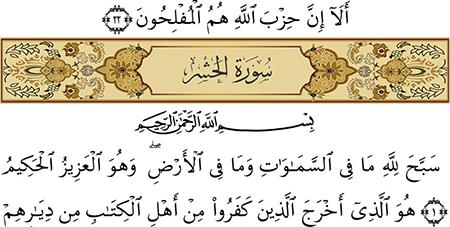 أَلَآ إِنَّ حِزْبَ ٱللَّهِ هُمُ ٱلْمُفْلِحُونَ ﴿٢٢﴾
سُورَةُ الحَشْرِ
بِسْمِ ٱللَّهِ ٱلرَّحْمَٰنِ ٱلرَّحِيمِ
سَبَّحَ لِلَّهِ مَا فِى ٱلسَّمَٰوَٰتِ وَمَا فِى ٱلْأَرْضِ ۖ وَهُوَ ٱلْعَزِيزُ ٱلْحَكِيمُ
﴿١﴾ هُوَ ٱلَّذِىٓ أَخْرَجَ ٱلَّذِينَ كَفَرُوا۟ مِنْ أَهْلِ ٱلْكِتَٰبِ مِن دِيَٰرِهِمْ